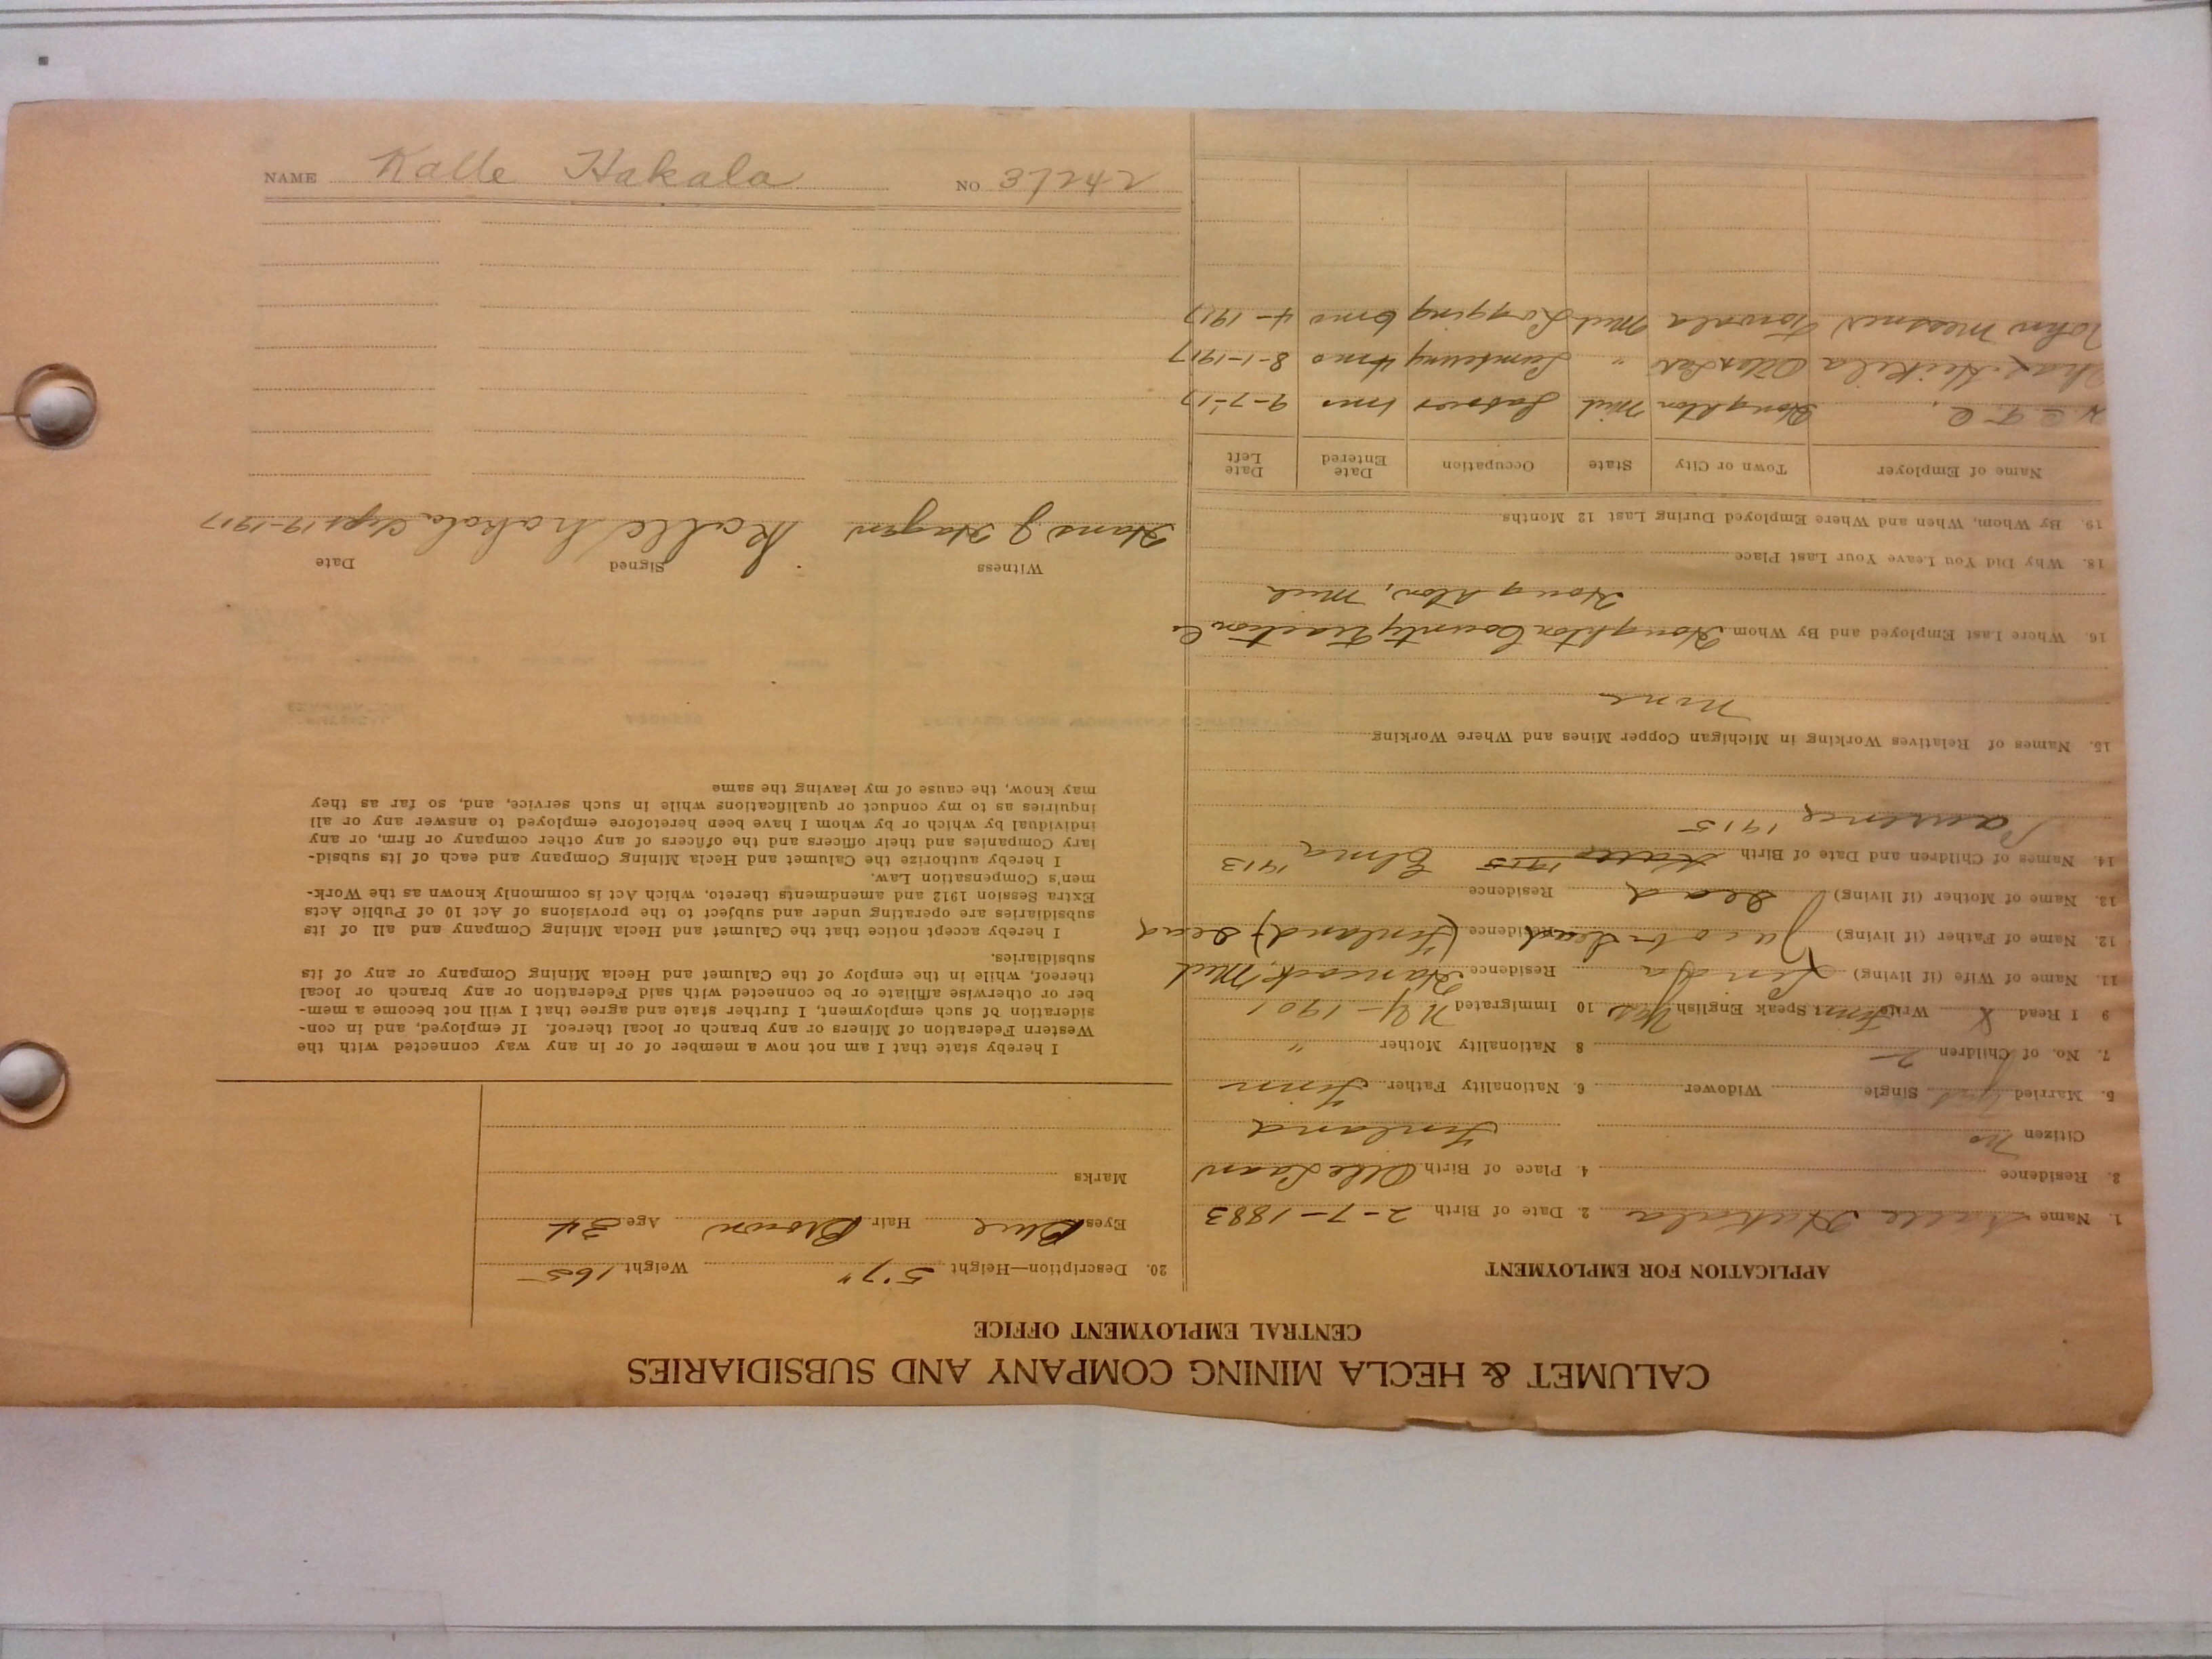 CALUMET & HECLA MINING COMPANY AND SUBSIDIARIES
CENTRAL EMPLOYMENT OFFICE
APPLICATION FOR EMPLOYMENT
1. Name Kalle Hakala 2. Date of Birth 2-7-1883
3. Residence 4. Place of Birth
Citizen no Finland
5. Married yes Single Widower 6. Nationality Father Finn
7. No. of Children 2 8 Nationality Mother "
9 I Read & Write Finn Speak English Yes 10 Immigrated N.Y-1901
11. Name of Wife (if living) Residence Hancock, Mich
12. Name of Father (if living) Jacob dead Residence (Finland) Dead
13. Name of Mother (if living) Dead Residence
14. Names of Children and Date of Birth Kalle 1915 Elma 1913
1915
15. Names of Relatives Working in Michigan Copper Mines and Where Working
None
16. Where Last Employed and By Whom Houghton County Traction Co
Houghton, Mich
18. Why Did You Leave Your Last Place
19. By Whom, When and Where Employed During Last 12 Months
Name of Employer Town or City State Occupation Date Entered Date Left
H.C.T.C. Houghton Mich Laborer 1mo 9-7-17
Chas. Heikila " Lumbering 4mos 8-1-1917
John Toivola Mich Logging 6mos 4-1917
20. Description—Height 5'7" Weight 165
Eyes Blue Hair Brown Age 34
Marks
I hereby state that I am not now a member of or in any way connected with the
Western Federation of Miners or any branch or local thereof. If employed, and in con-
sideration of such employment, I further state and agree that I will not become a mem-
ber or otherwise affiliate or be connected with said Federation or any branch or local
thereof, while in the employ of the Calumet and Hecla Mining Company or any of its
subsidiaries.
I hereby accept notice that the Calumet and Hecla Mining Company and all of its
subsidiaries are operating under and subject to the provisions of Act 10 of Public Acts
Extra Session 1912 and amendments thereto, which Act is commonly known as the Work-
men's Compensation Law.
I hereby authorize the Calumet and Hecla Mining Company and each of its subsid-
iary Companies and their officers and the officers of any other company or firm, or any
individual by which or by whom I have been heretofore employed to answer any or all
inquiries as to my conduct or qualifications while in such service, and, so far as they
may know, the cause of my leaving the same
Witness Signed Date
Hans J Hagen Kalle hakala Sept 19-1917
NAME Kalle Hakala NO 37242